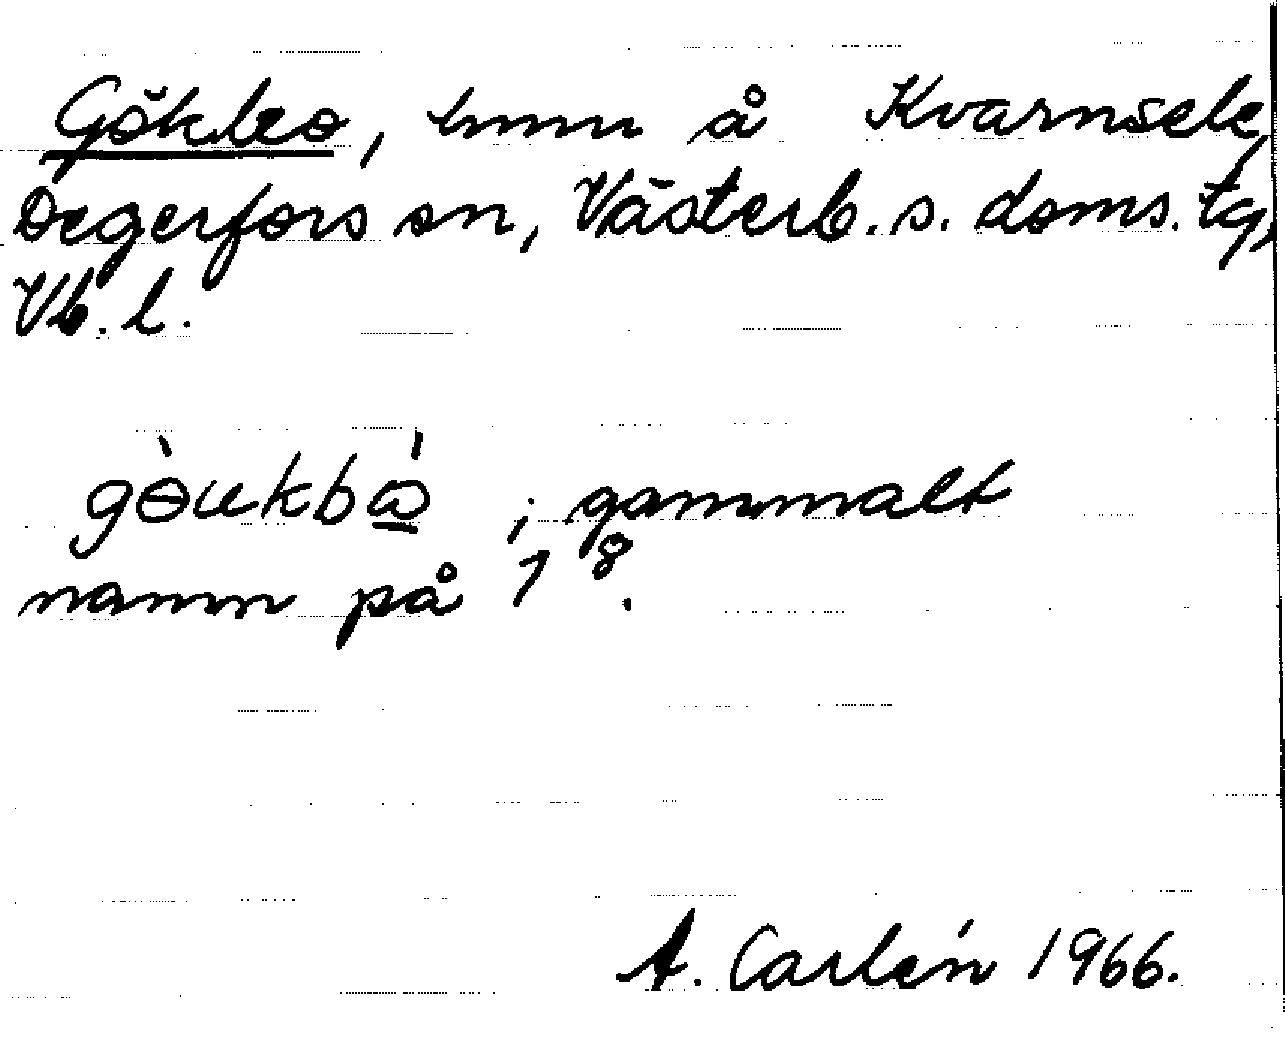 Gökbo, hmn å Kvarnsele,
Degerfors sn, Västerb. s. doms. tg,
Vb. l.
gòukbá̲ ; gammalt
namn på 1⁸.
A. Carlén 1966.